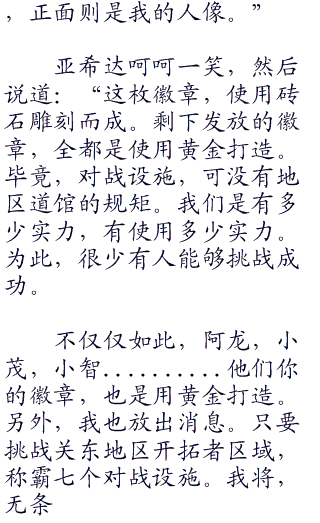 ，正面则是我的人像。”
亚希达呵呵一笑，然后
说道：“这枚徽章，使用砖
石雕刻而成。剩下发放的徽
章，全都是使用黄金打造。
毕竟，对战设施，可没有地
区道馆的规矩。我们是有多
少实力，有使用多少实力。
为此，很少有人能够挑战成
功。
不仅仅如此，阿龙，小
茂，小智..........他们你
的徽章，也是用黄金打造。
另外，我也放出消息。只要
挑战关东地区开拓者区域，
称霸七个对战设施。我将，
无条